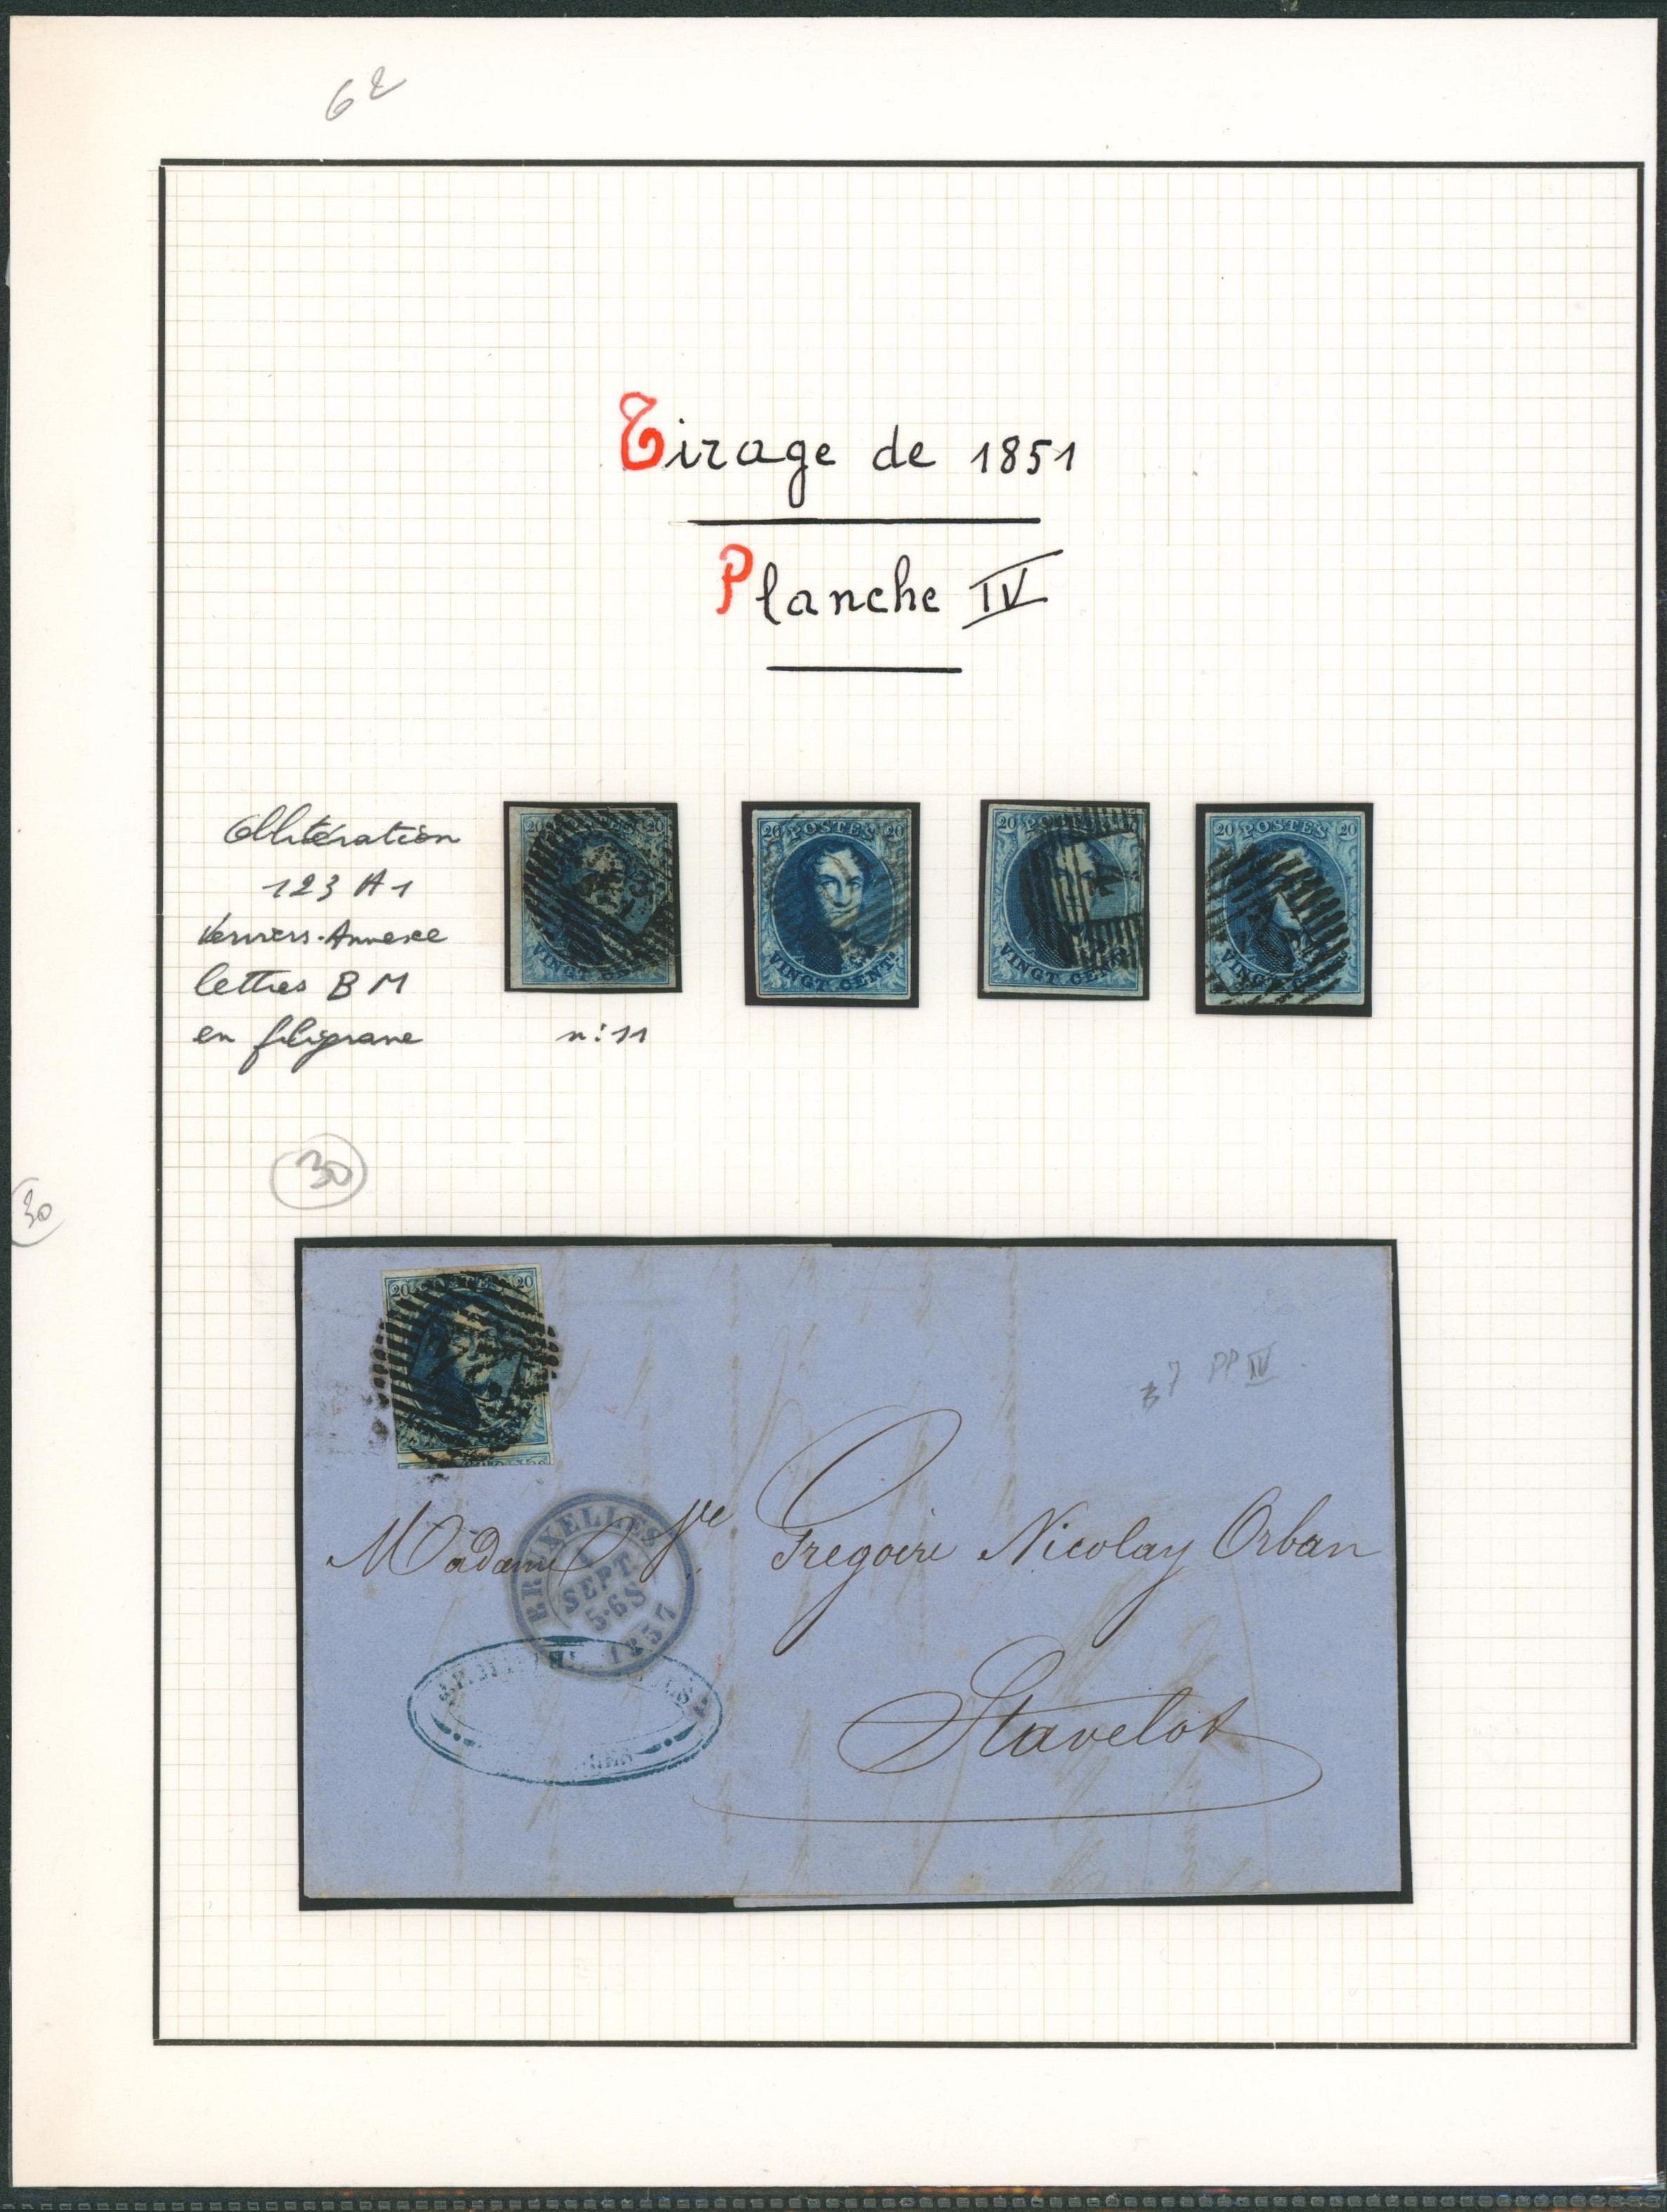 62
Tirage de 1851
Planche IV
Oblitération
123 A1
Verviers-Annexe
lettres B M
en filigrane
n: 11
20 POSTES 20
VINGT CENTS
20 POSTES 20
VINGT CENTS.
20 POSTES 20
VINGT CENTS
20 POSTES 20
VINGT C
30
30
20 20
7 PP IV
Madame Vve Gregoire Nicolay Orban
BRUXELLES
SEPT.
5-6 S
1857
Stavelot